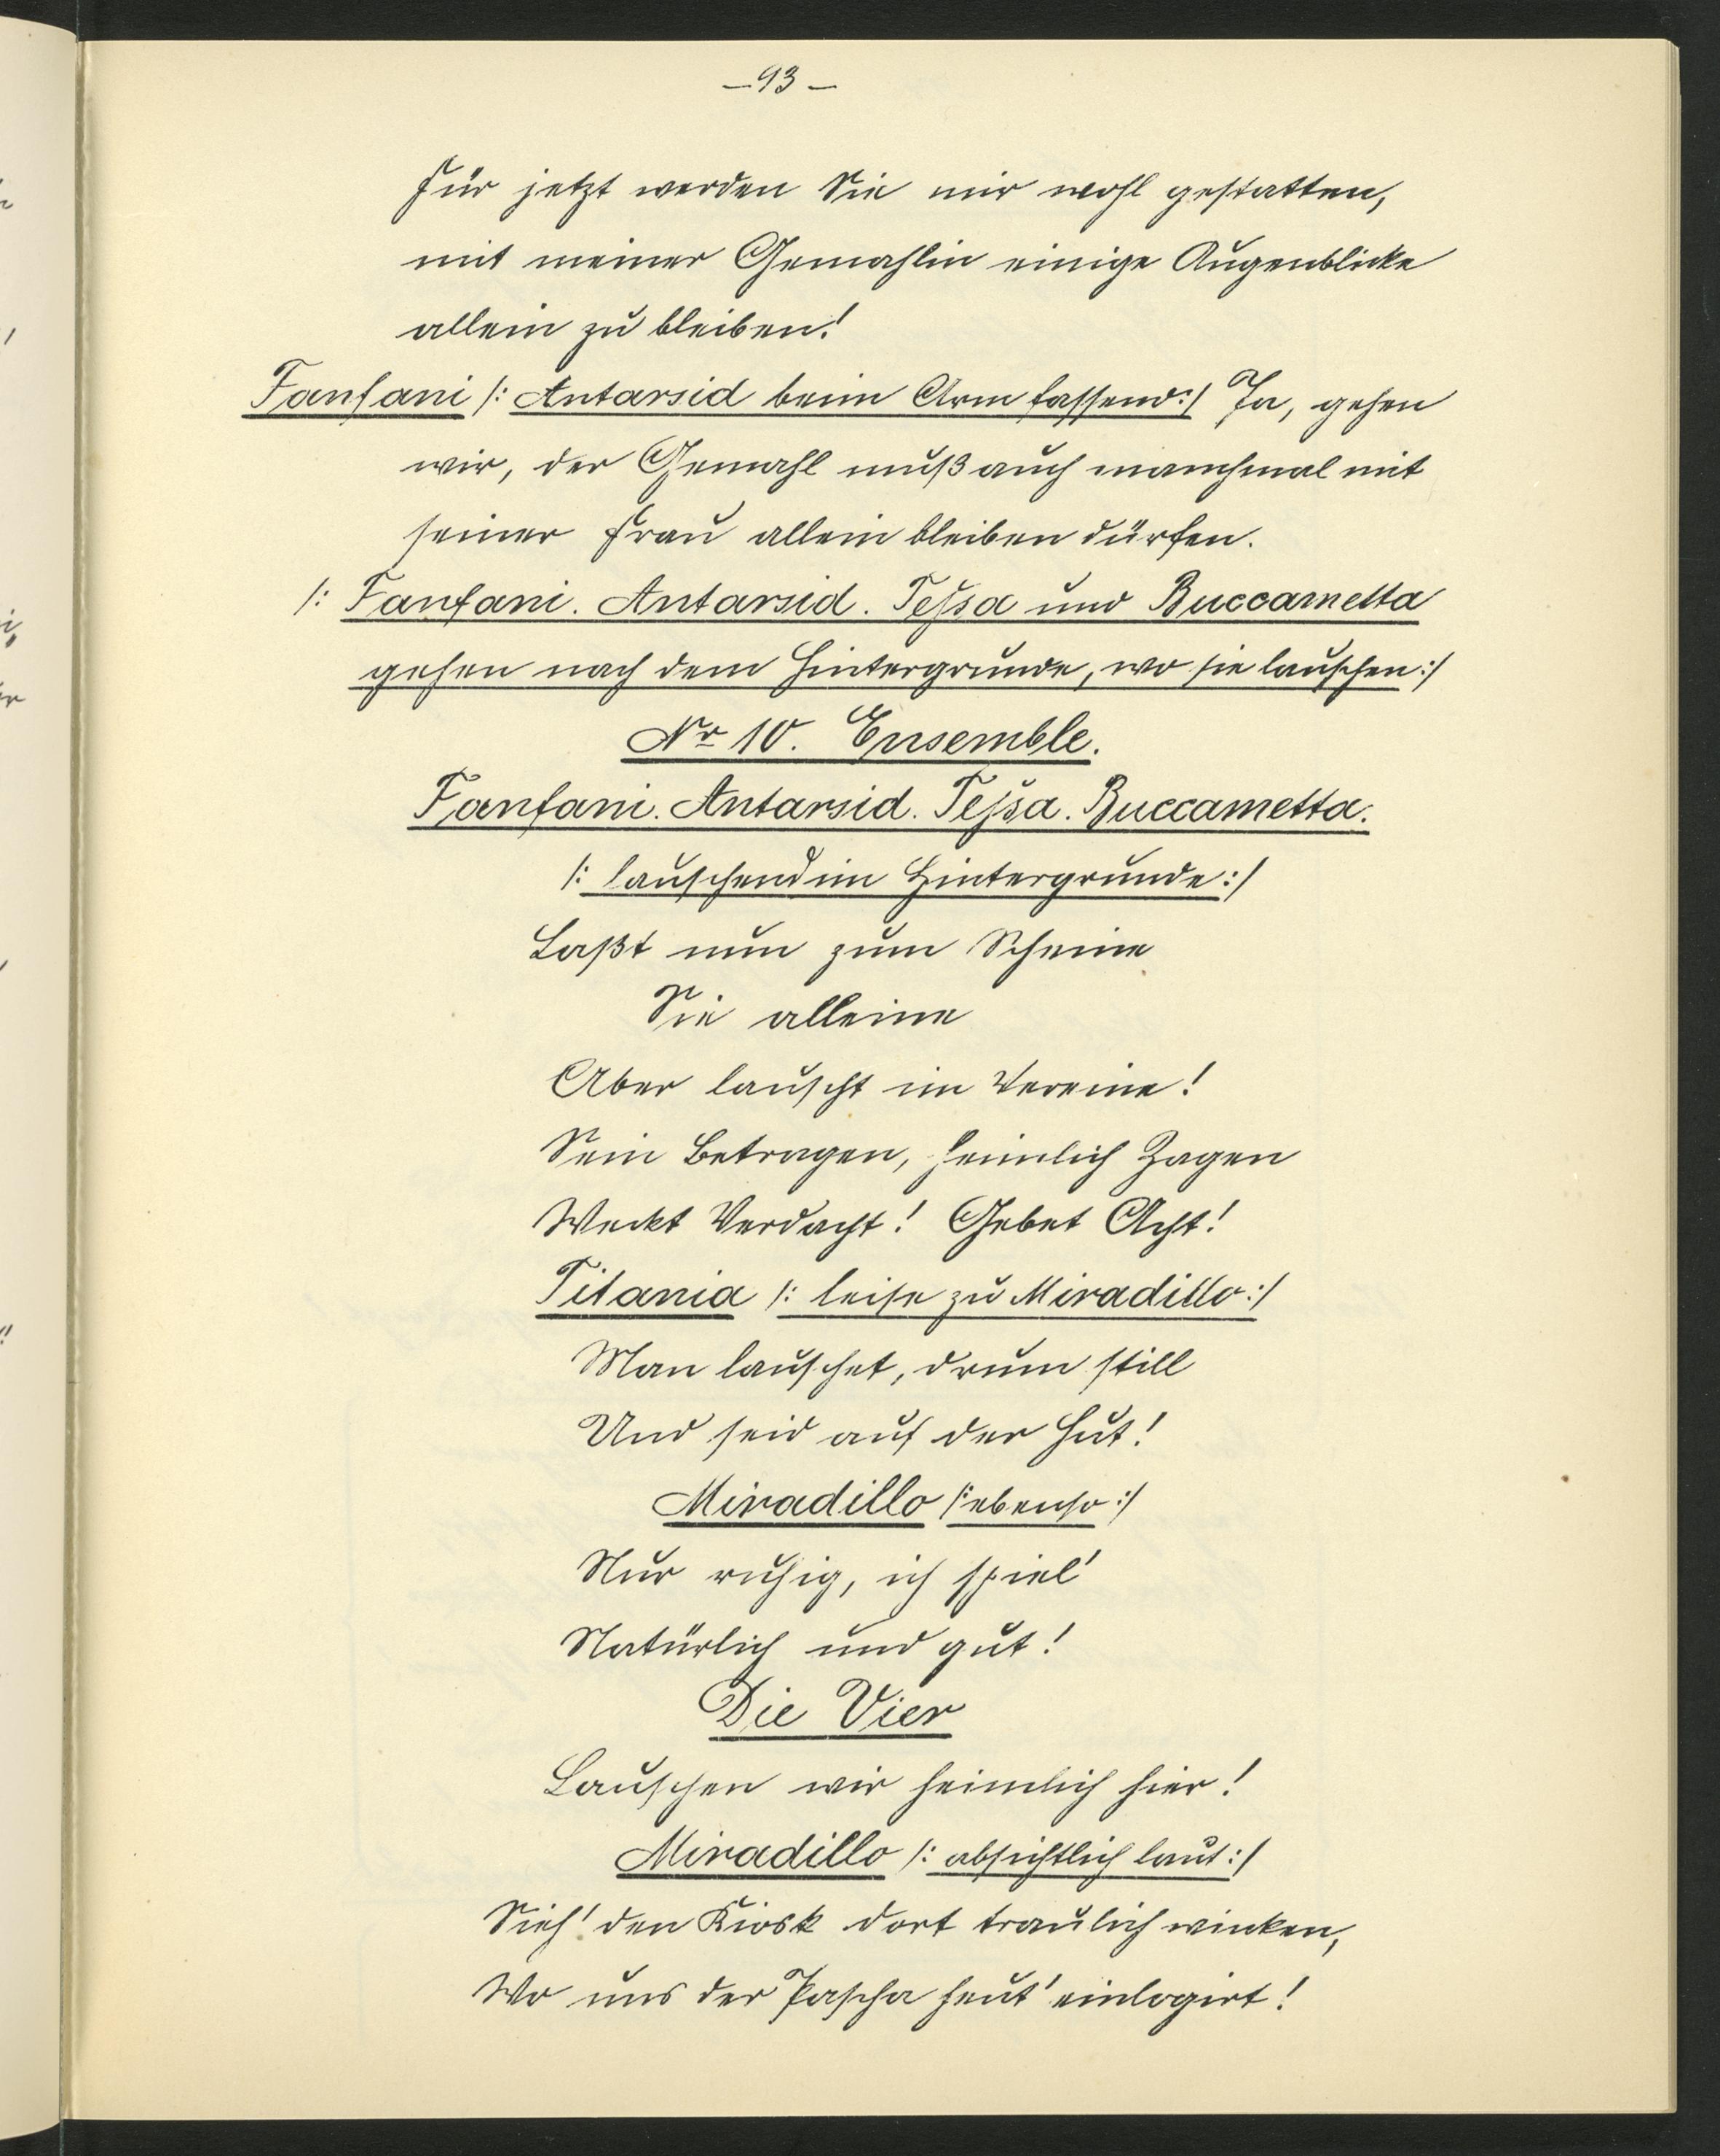 — 93 —
Für jetzt werden Sie mir wohl gestatten,
mit meiner Gemahlin einige Augenblicke
allein zu bleiben!
Fanfani /: Antarsid beim Arm fassend :/ Ja, gehen
wir, der Gemahl muß auch manchmal mit
seiner Frau allein bleiben dürfen.
/: Fanfani. Antarsid. Teßa und Buccametta
gehen nach dem Hintergrunde, wo sie lauschen :/
Nr 10. Ensemble.
Fanfani. Antarsid. Teßa. Buccametta.
/: lauschend im Hintergrunde :/
Laßt nun zum Scheine
Sie alleine
Aber lauscht im Vereine!
Sein Betragen, heimlich Zagen
Weckt Verdacht! Gebet Acht!
Titania /: leise zu Miradillo :/
Man lauschet, drum still
Und seid auf der Hut!
Miradillo /: ebenso :/
Nur ruhig, ich spiel'
Natürlich und gut!
Die Vier
Lauschen wir heimlich hier!
Miradillo /: absichtlich laut :/
Sieh' den Kiosk dort traulich winken,
Wo uns der Pascha heut' einlogirt!